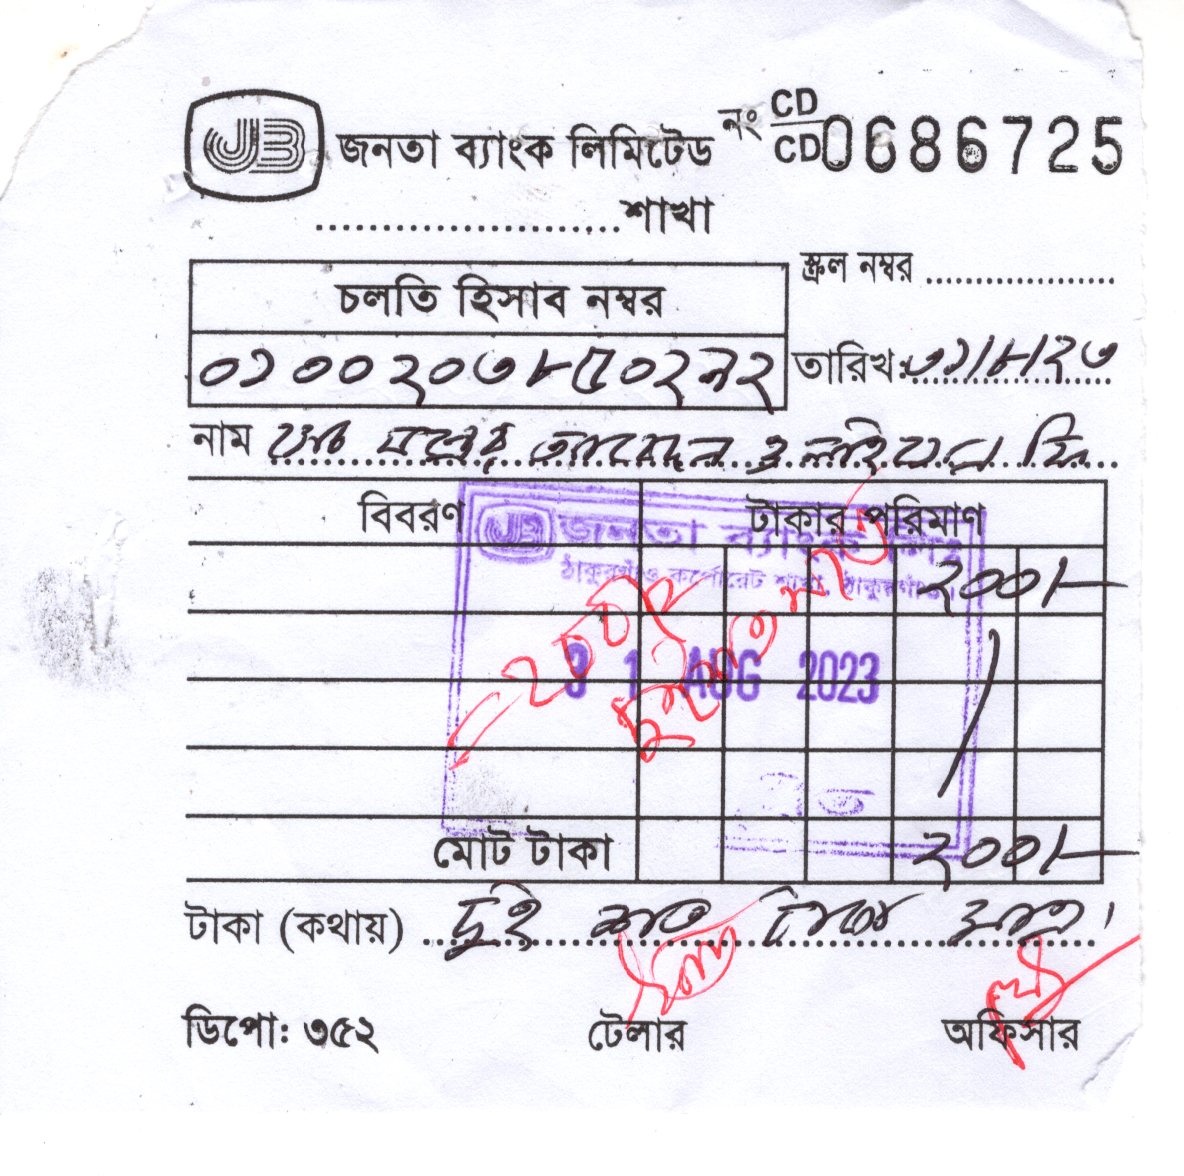 JB জনতা ব্যাংক লিমিটেড নং CD CD 0686725
....................শাখা
স্ক্রল নম্বর ..................
চলতি হিসাব নম্বর
০১০০২০৩৮৫০২৯২ তারিখঃ ৩১/৮/২৩
নাম আবেদন ও ফি
বিবরণ টাকার পরিমাণ
JB জনতা ব্যাংক
ঠাকুরগাঁও কর্পোরেট শাখা, ঠাকুরগাঁও।
২০০/-
31 AUG 2023
মোট টাকা ২০০/-
টাকা (কথায়) দুই শত টাকা মাত্র।
ডিপো: ৩৫২ টেলার অফিসার